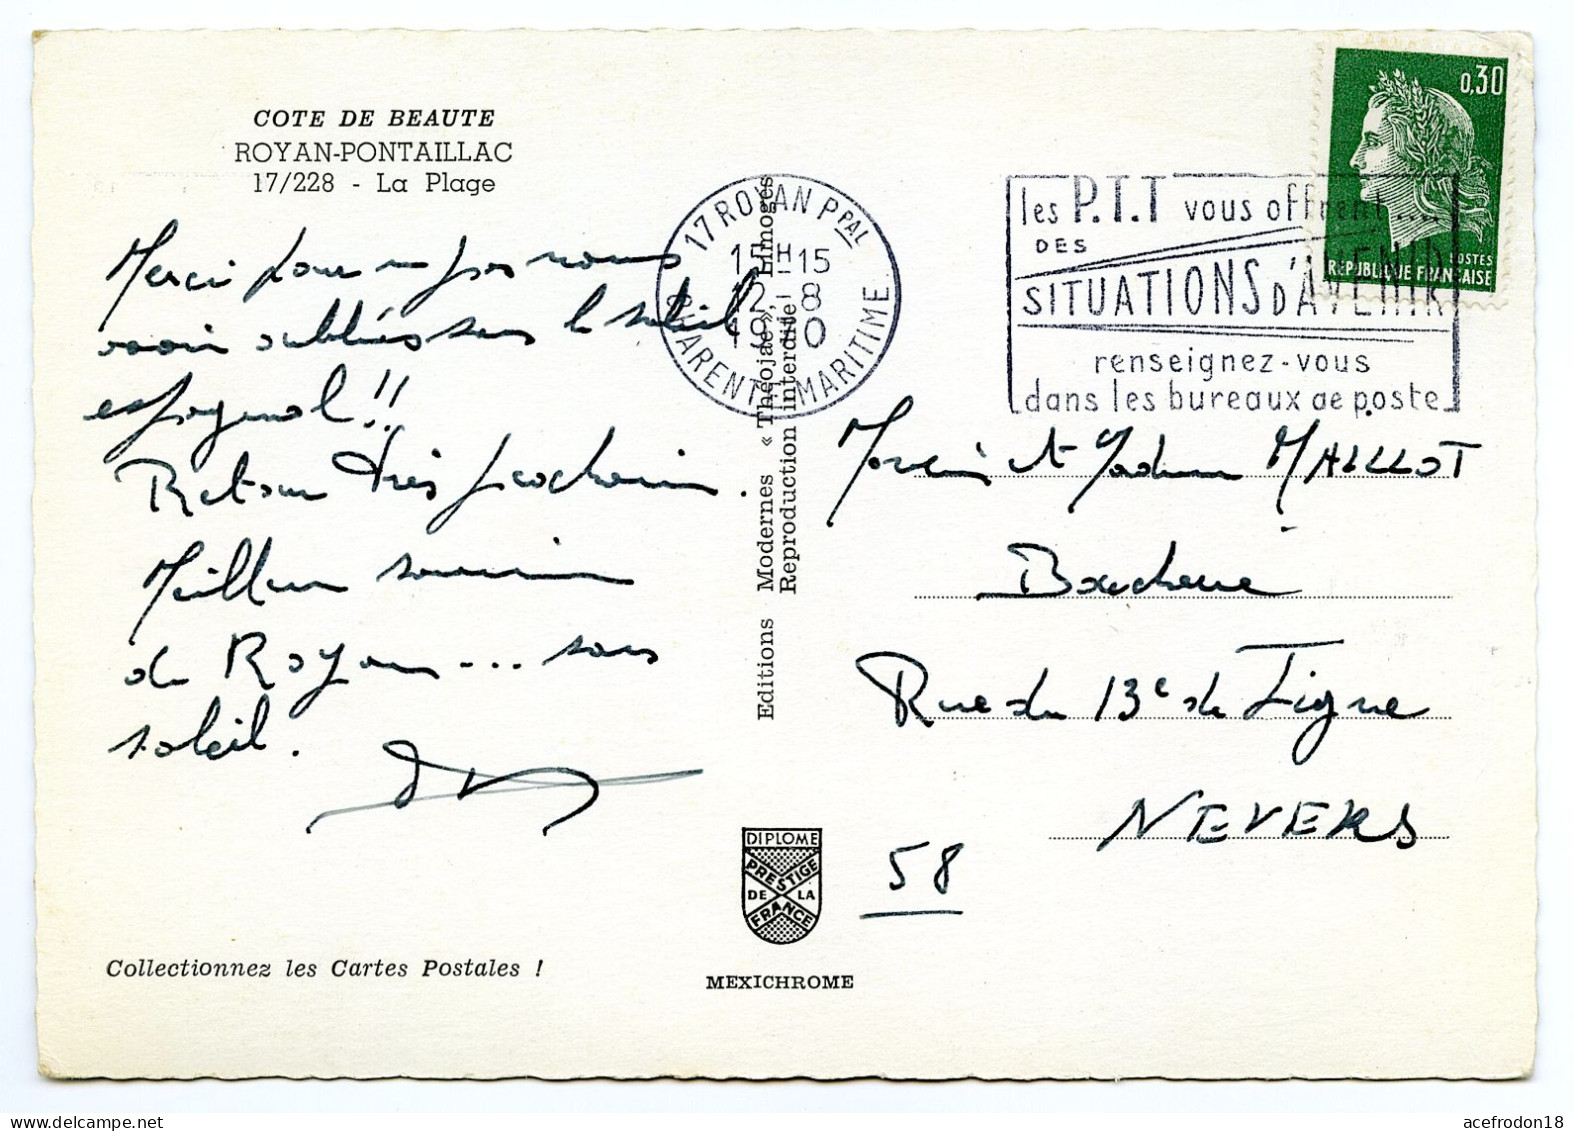 COTE DE BEAUTE
ROYAN-PONTAILLAC
17/228 - La Plage
Merci pour ne pas nous
avoir oubliés sous le soleil
espagnol !!
Retour très prochain.
Meilleur souvenir
de Royan... sans
soleil.
Collectionnez les Cartes Postales !
Editions Modernes « Théojac », Limoges
Reproduction interdite
DIPLOME
PRESTIGE
DE LA
FRANCE
MEXICHROME
17 ROYAN PPAL
15H-15
12-8
19 0
CHARENTE MARITIME
les P.T.T vous offrent....
DES
SITUATIONS D'AVENIR
renseignez-vous
dans les bureaux de poste
0,30
POSTES
REPUBLIQUE FRANÇAISE
Monsieur et Madame MALLLOT
Boucherie
Rue du 13e de Ligne
NEVERS
58
acefrodon18